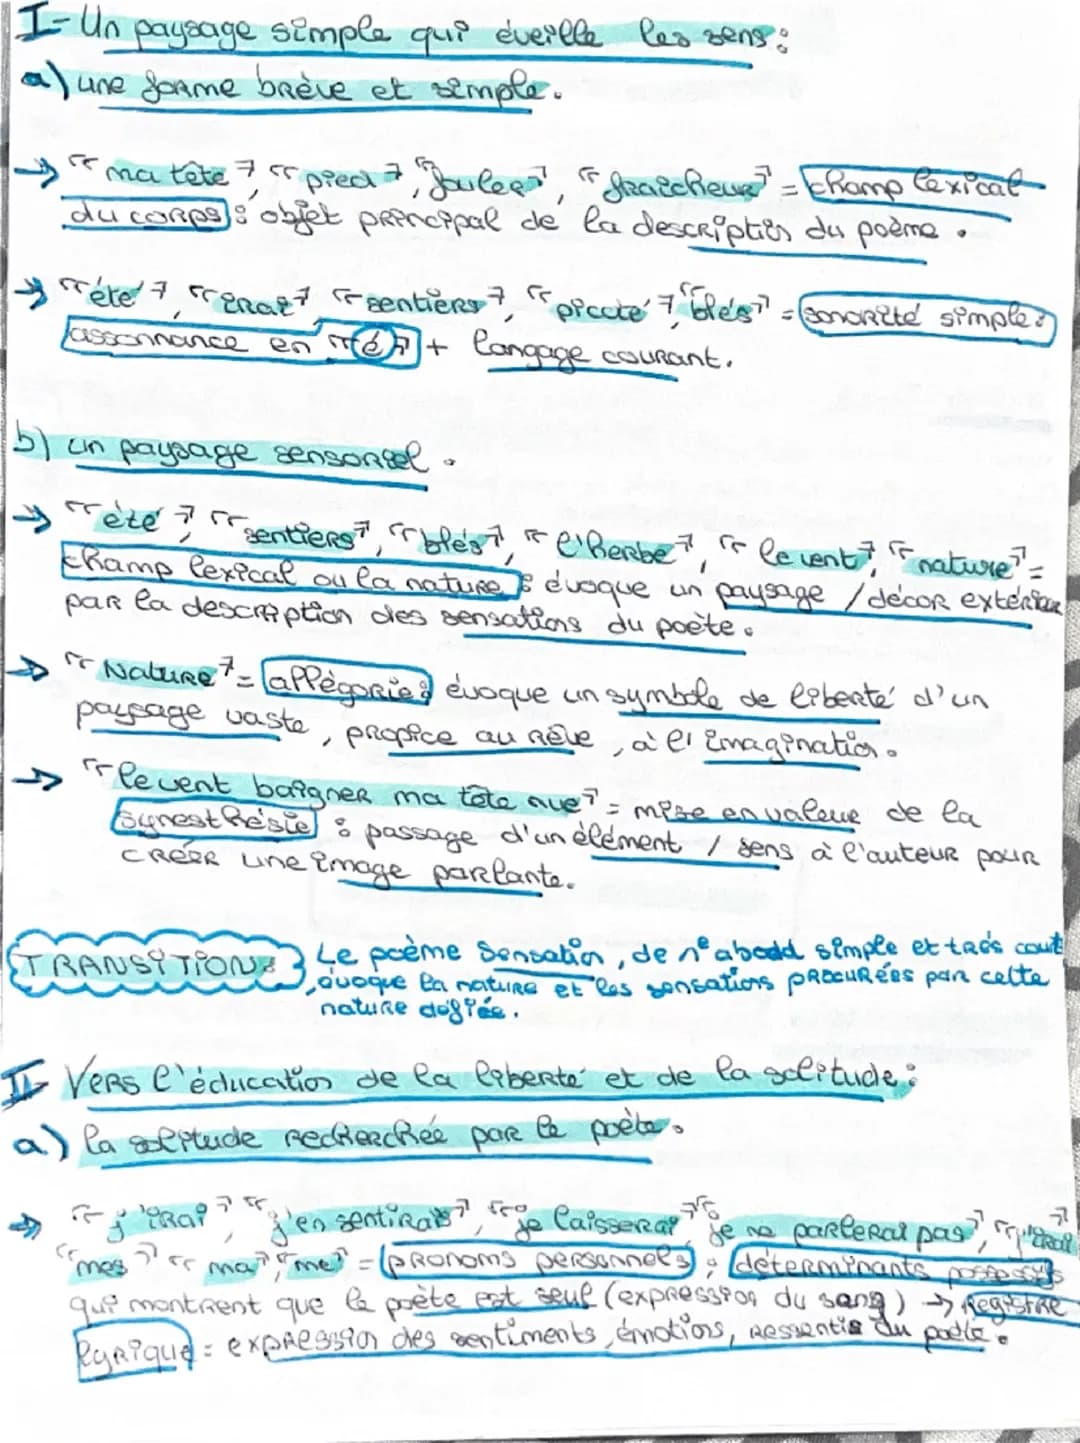 I- Un paysage simple qui éveille les sens :
a) une forme brève et simple.
→ "ma tête", "pied", "fouler", "fraîcheur" = champ lexical
du corps : objet principal de la description du poème.
→ "été", "irai", "sentiers", "picoté", "blés" = sonorité simple :
assonnance en "é" + langage courant.
b) un paysage sensoriel.
→ "été", "sentiers", "blés", "l'herbe", "le vent", "nature" =
champ lexical ou la nature : évoque un paysage / décor extérieur
par la description des sensations du poète.
→ "Nature" = allégorie : évoque un symbole de liberté d'un
paysage vaste, propice au rêve, à l'imagination.
→ "le vent baigner ma tête nue" = mise en valeur de la
synesthésie : passage d'un élément / sens à l'auteur pour
créer une image parlante.
TRANSITION : Le poème Sensation, de simple et très court
évoque la nature et les sensations procurées par cette
nature déifiée.
II- Vers l'éducation de la liberté et de la solitude :
a) la solitude recherchée par le poète.
→ "j'irai", "j'en sentirais", "je laisserai", "je ne parlerai pas", "j'irai"
"mes" "ma", "me" = pronoms personnels ; déterminants possessifs
qui montrent que le poète est seul (expression du sang) → Registre
lyrique : expression des sentiments, émotions, ressentis du poète.